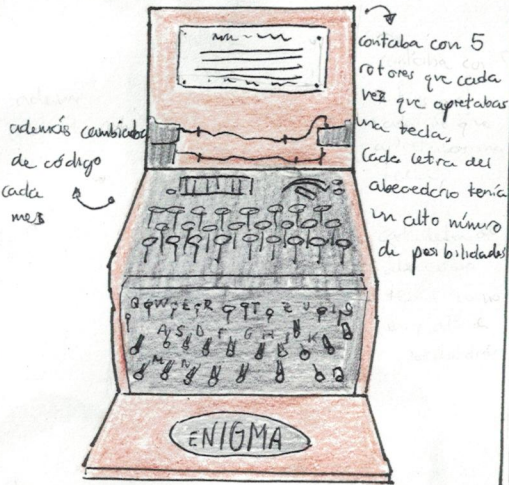 contaba con 5
rotores que cada
vez que apretabas
una tecla,
cada letra del
abecedario tenía
un alto número
de posibilidades
además cambiaba
de código
cada
mes
Q W E R T Z U I O
A S D F G H J K
M N
ENIGMA